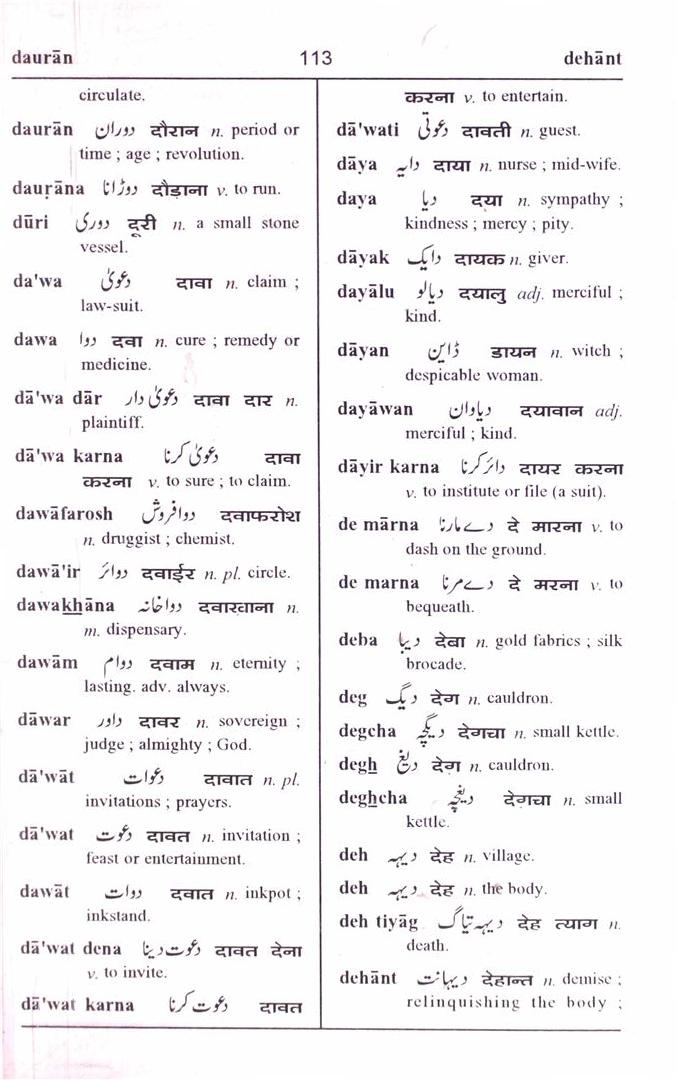 daurān 113 dehānt
circulate.
daurān دوران दौरान n. period or
time ; age ; revolution.
dauṛāna دوڑانا दौड़ाना v. to run.
dūri دوری दूरी n. a small stone
vessel.
da'wa دعویٰ दावा n. claim ;
law-suit.
dawa دوا दवा n. cure ; remedy or
medicine.
dā'wa dār دعویٰ دار दावा दार n.
plaintiff.
dā'wa karna دعویٰ کرنا दावा
करना v. to sure ; to claim.
dawāfarosh دوافروش दवाफरोश
n. druggist ; chemist.
dawā'ir دوائر दवाईर n. pl. circle.
dawakhāna دواخانہ दवाखाना n.
m. dispensary.
dawām دوام दवाम n. eternity ;
lasting. adv. always.
dāwar داور दावर n. sovereign ;
judge ; almighty ; God.
dā'wāt دعوات दावात n. pl.
invitations ; prayers.
dā'wat دعوت दावत n. invitation ;
feast or entertainment.
dawāt دوات दवात n. inkpot ;
inkstand.
dā'wat dena دعوت دینا दावत देना
v. to invite.
dā'wat karna دعوت کرنا दावत
करना v. to entertain.
dā'wati دعوتی दावती n. guest.
dāya دایہ दाया n. nurse ; mid-wife.
daya دیا दया n. sympathy ;
kindness ; mercy ; pity.
dāyak دایک दायक n. giver.
dayālu دیالو दयालु adj. merciful ;
kind.
dāyan ڈاین डायन n. witch ;
despicable woman.
dayāwan دیاوان दयावान adj.
merciful ; kind.
dāyir karna دائر کرنا दायर करना
v. to institute or file (a suit).
de mārna دے مارنا दे मारना v. to
dash on the ground.
de marna دے مرنا दे मरना v. to
bequeath.
deba دیبا देबा n. gold fabrics ; silk
brocade.
deg دیگ देग n. cauldron.
degcha دیگچہ देगचा n. small kettle.
degh دیغ देग़ n. cauldron.
deghcha دیغچہ देगचा n. small
kettle.
deh دیہہ देह n. village.
deh دیہہ देह n. the body.
deh tiyāg دیہہ تیاگ देह त्याग n.
death.
dehānt دیہانت देहान्त n. demise ;
relinquishing the body ;